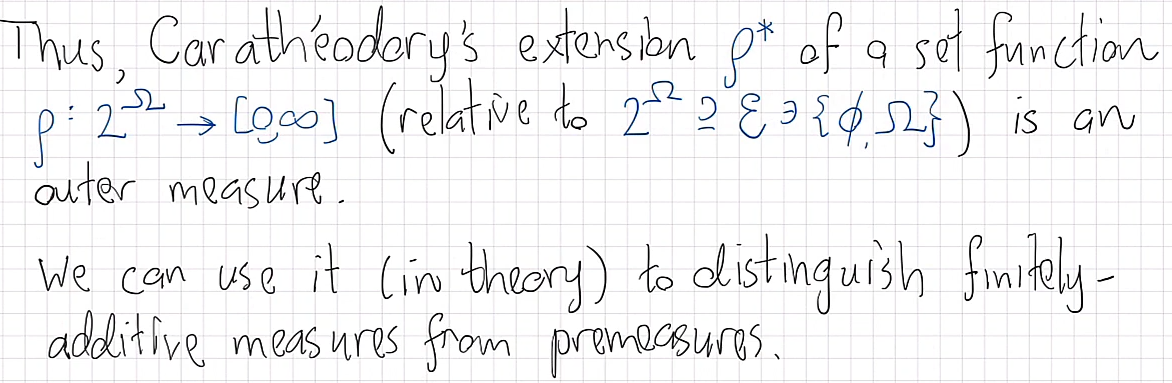 Thus, Carathéodory's extension ρ* of a set function
ρ: 2^Ω → [0,∞] (relative to 2^Ω ⊇ ℰ ∋ {ϕ, Ω}) is an
outer measure.
We can use it (in theory) to distinguish finitely-
additive measures from premeasures.